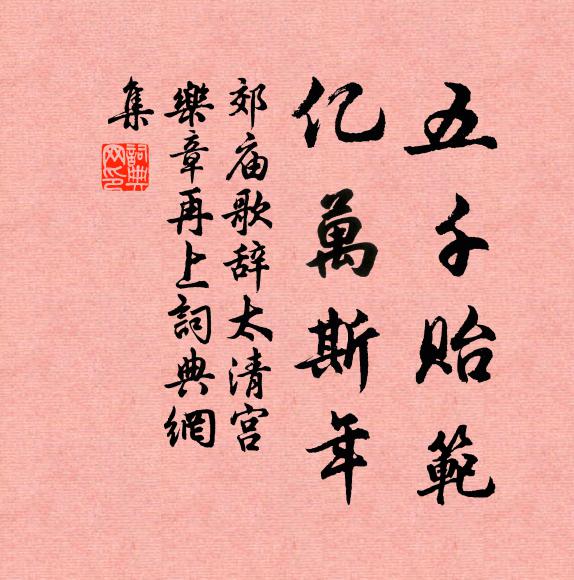 五千贻範
亿萬斯年
郊庙歌辞太清宫
樂章再上詞典網
集
詞典網印